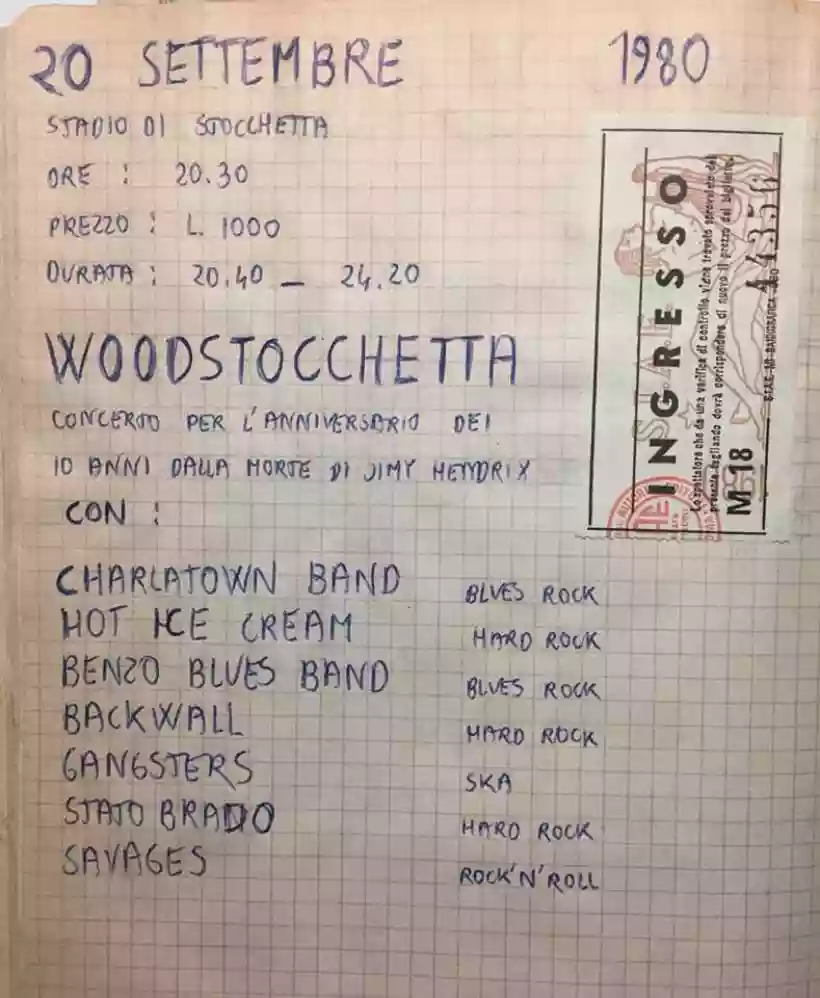 20 SETTEMBRE 1980
STADIO DI STOCCHETTA
ORE : 20.30
PREZZO : L. 1000
DURATA : 20.40 – 24.20
WOODSTOCCHETTA
CONCERTO PER L'ANNIVERSARIO DEI
10 ANNI DALLA MORTE DI JIMY HENDRIX
CON :
CHARLATOWN BAND BLUES ROCK
HOT ICE CREAM HARD ROCK
BENZO BLUES BAND BLUES ROCK
BACKWALL HARD ROCK
GANGSTERS SKA
STATO BRADO HARD ROCK
SAVAGES ROCK'N'ROLL
INGRESSO
Lo spettatore che da una verifica di controllo viene trovato sprovvisto del
presente tagliando dovrà corrispondere di nuovo il prezzo del biglietto.
M 18